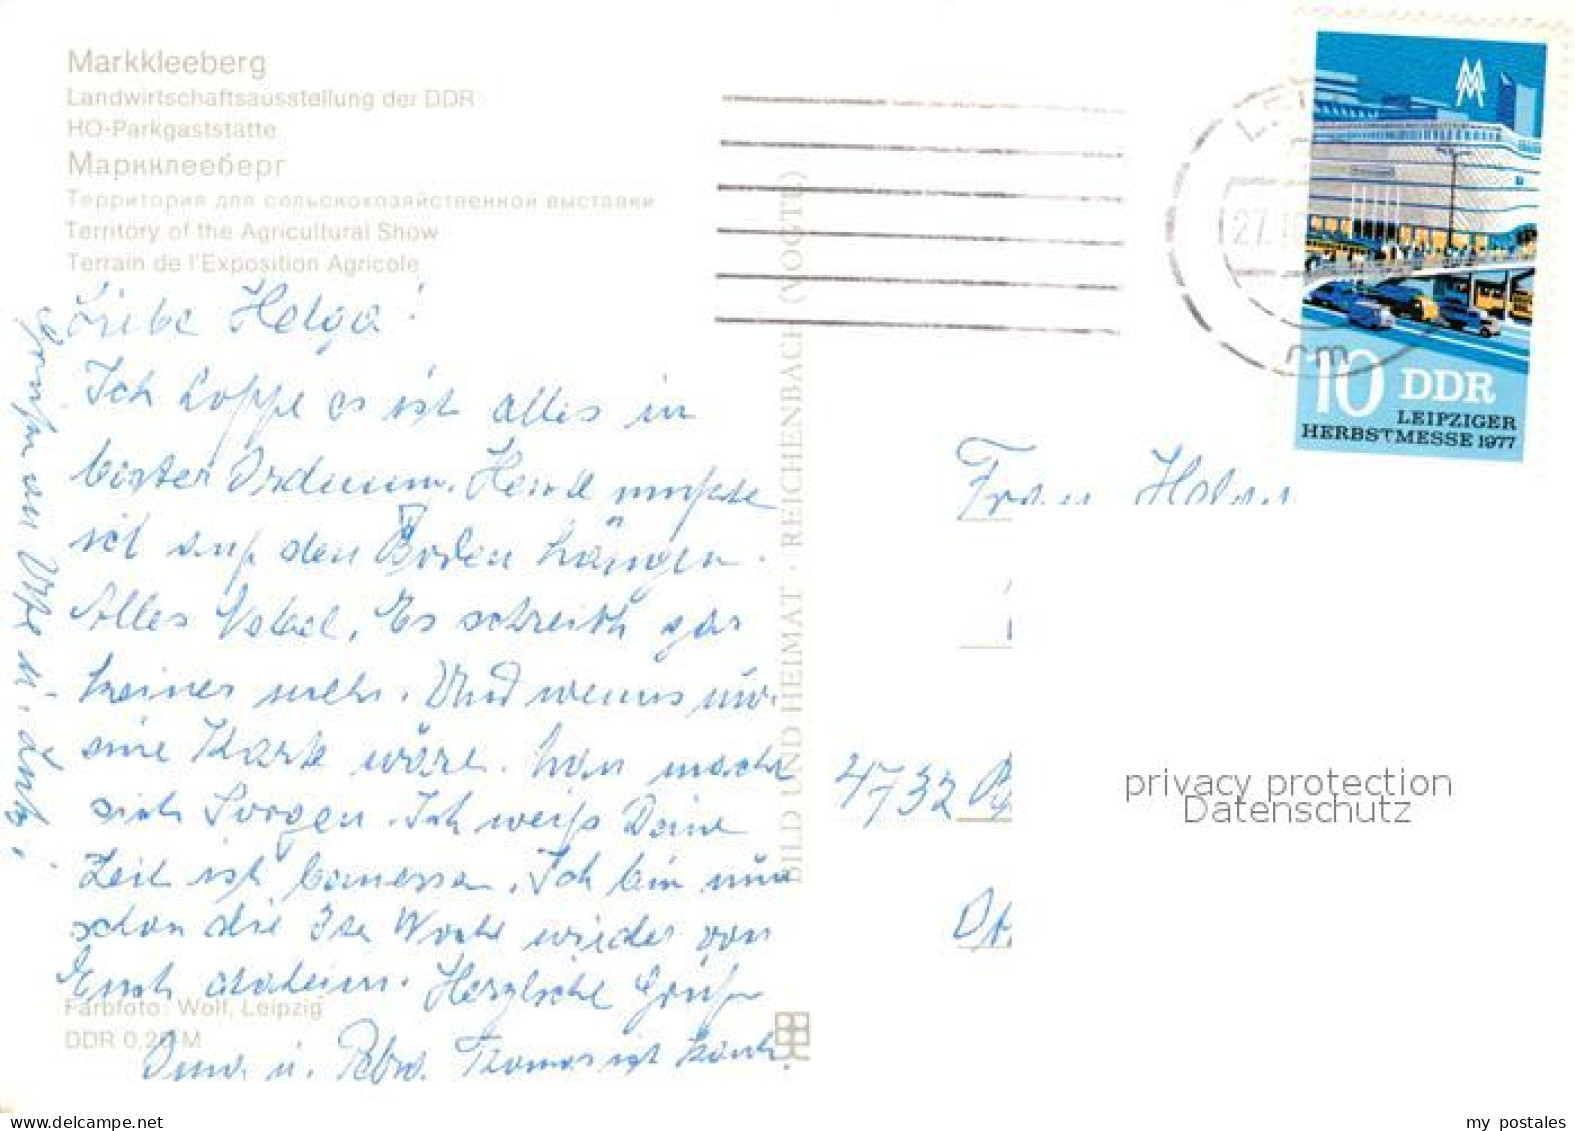 Markkleeberg
Landwirtschaftsausstellung der DDR
HO-Parkgaststätte
Маркклееберг
Территория для сельскохозяйственной выставки
Territory of the Agricultural Show
Terrain de l'Exposition Agricole
Liebe Helga!
Ich hoffe es ist alles in
bester Ordnung. Hemd mußte
ich auf den Boden hängen.
Alles Nebel. Es schreibt gar
keiner mehr. Und wenns nur
eine Karte wäre. Man macht
sich Sorgen. Ich weiß Deine
Zeit ist bemessen. Ich bin nun
schon die 3te Woche wieder von
Euch daheim. Herzliche Grüße
Oma u. Thomas ist krank.
Farbfoto: Wolf, Leipzig
DDR 0,20 M
BILD UND HEIMAT · REICHENBACH (VOGTL)
27.
10 DDR
LEIPZIGER
HERBSTMESSE 1977
Frau
4732
privacy protection
Datenschutz
my postales
www.delcampe.net